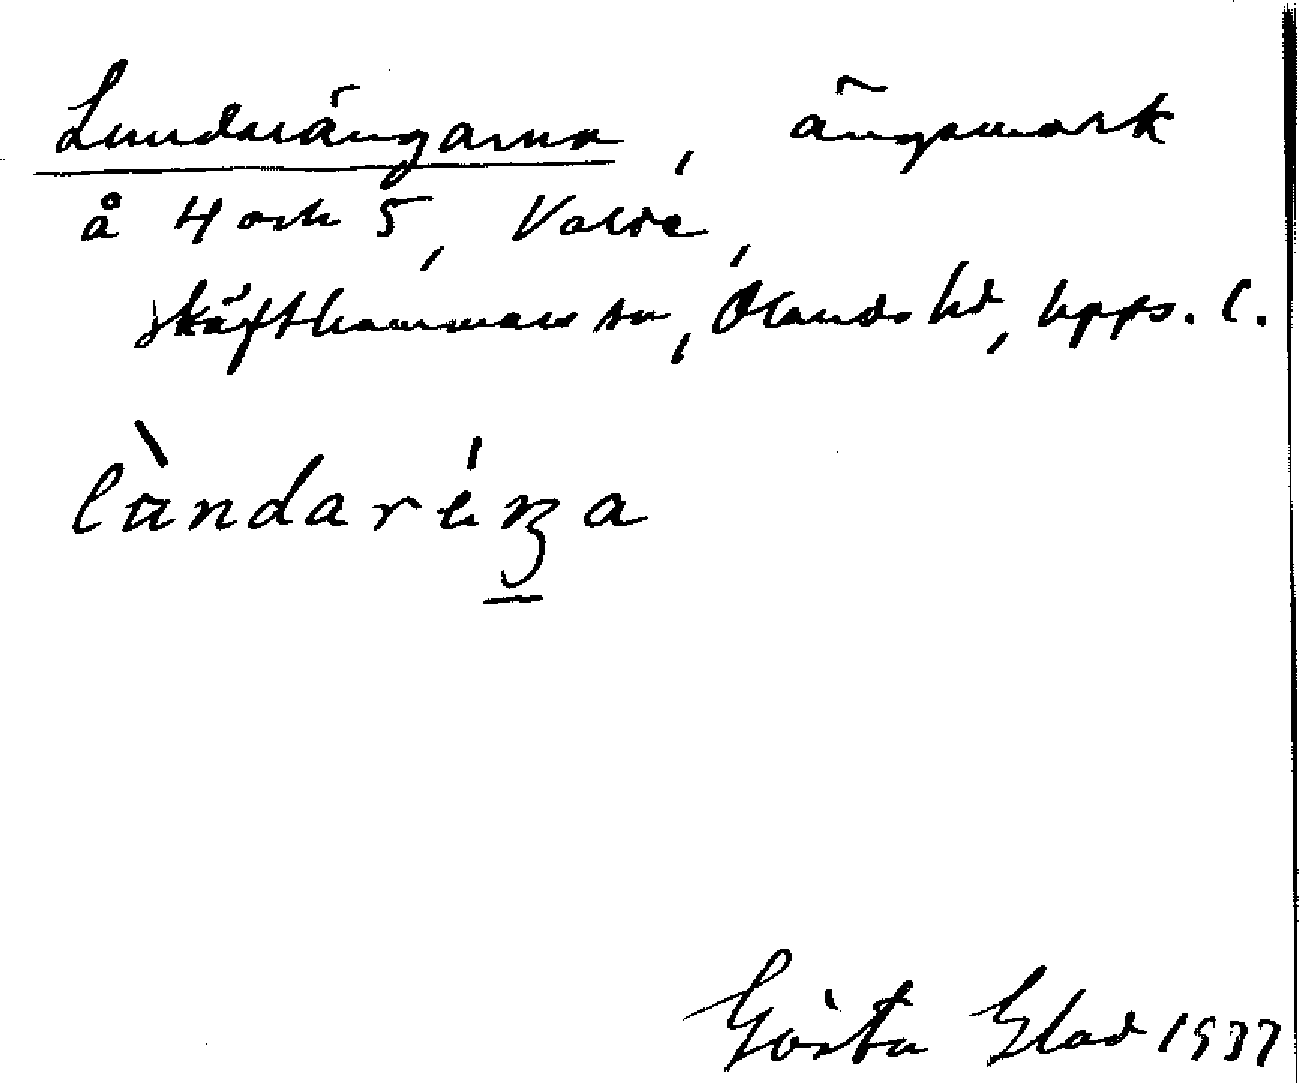 Lunderängarna, ängsmark
å 4 och 5, Valöe,
Skäfthammars sn, Olands hd, Upps. l.
lùndaréŋa
Gösta Glad 1937